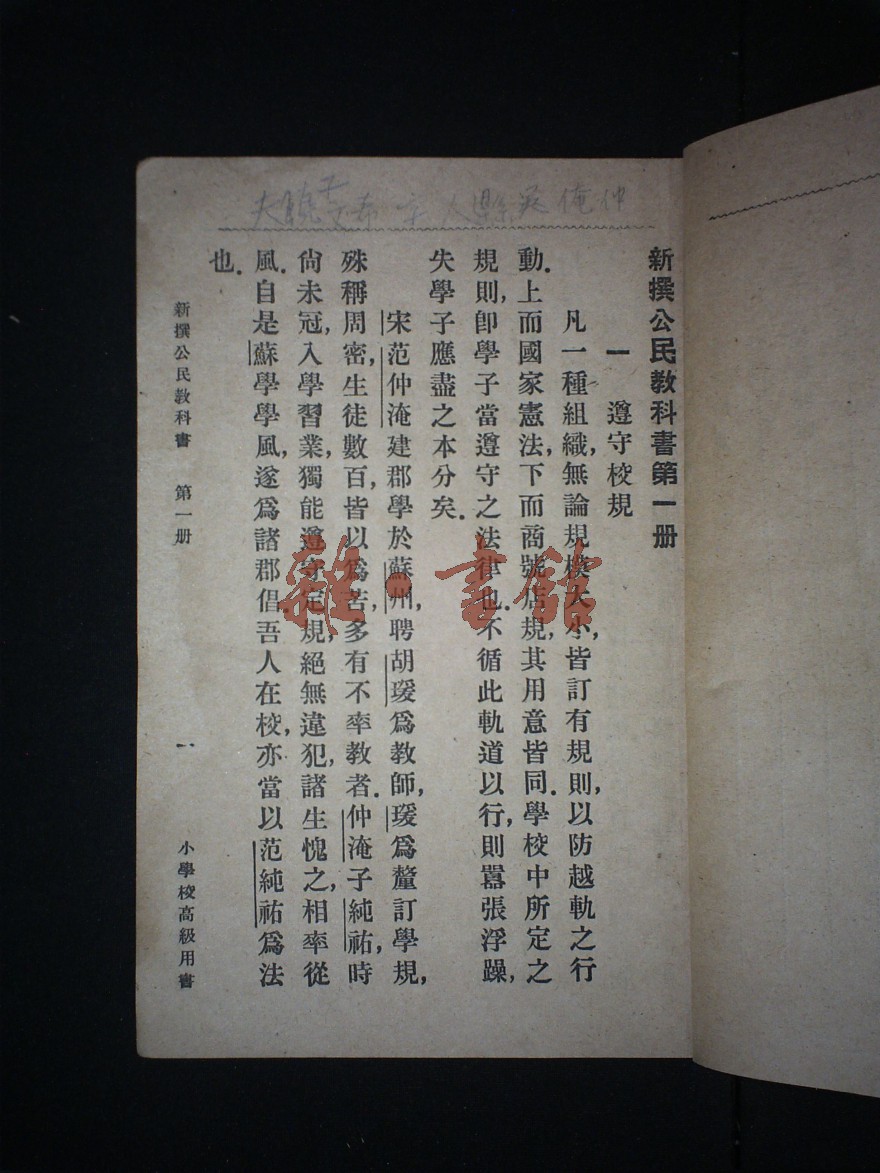 新撰公民教科書第一册
一 遵守校規
凡一種組織,無論規模大小,皆訂有規則,以防越軌之行
動.上而國家憲法,下而商號店規,其用意皆同.學校中所定之
規則,卽學子當遵守之法律也.不循此軌道以行,則囂張浮躁,
失學子應盡之本分矣.
宋范仲淹建郡學於蘇州,聘胡瑗爲敎師,瑗爲釐訂學規,
殊稱周密,生徒數百,皆以爲苦,多有不率敎者.仲淹子純祐,時
尙未冠,入學習業,獨能遵守定規,絕無違犯,諸生愧之,相率從
風.自是蘇學學風,遂爲諸郡倡.吾人在校,亦當以范純祐爲法
也.
新撰公民敎科書 第一册 一 小學校高級用書
雜·書館